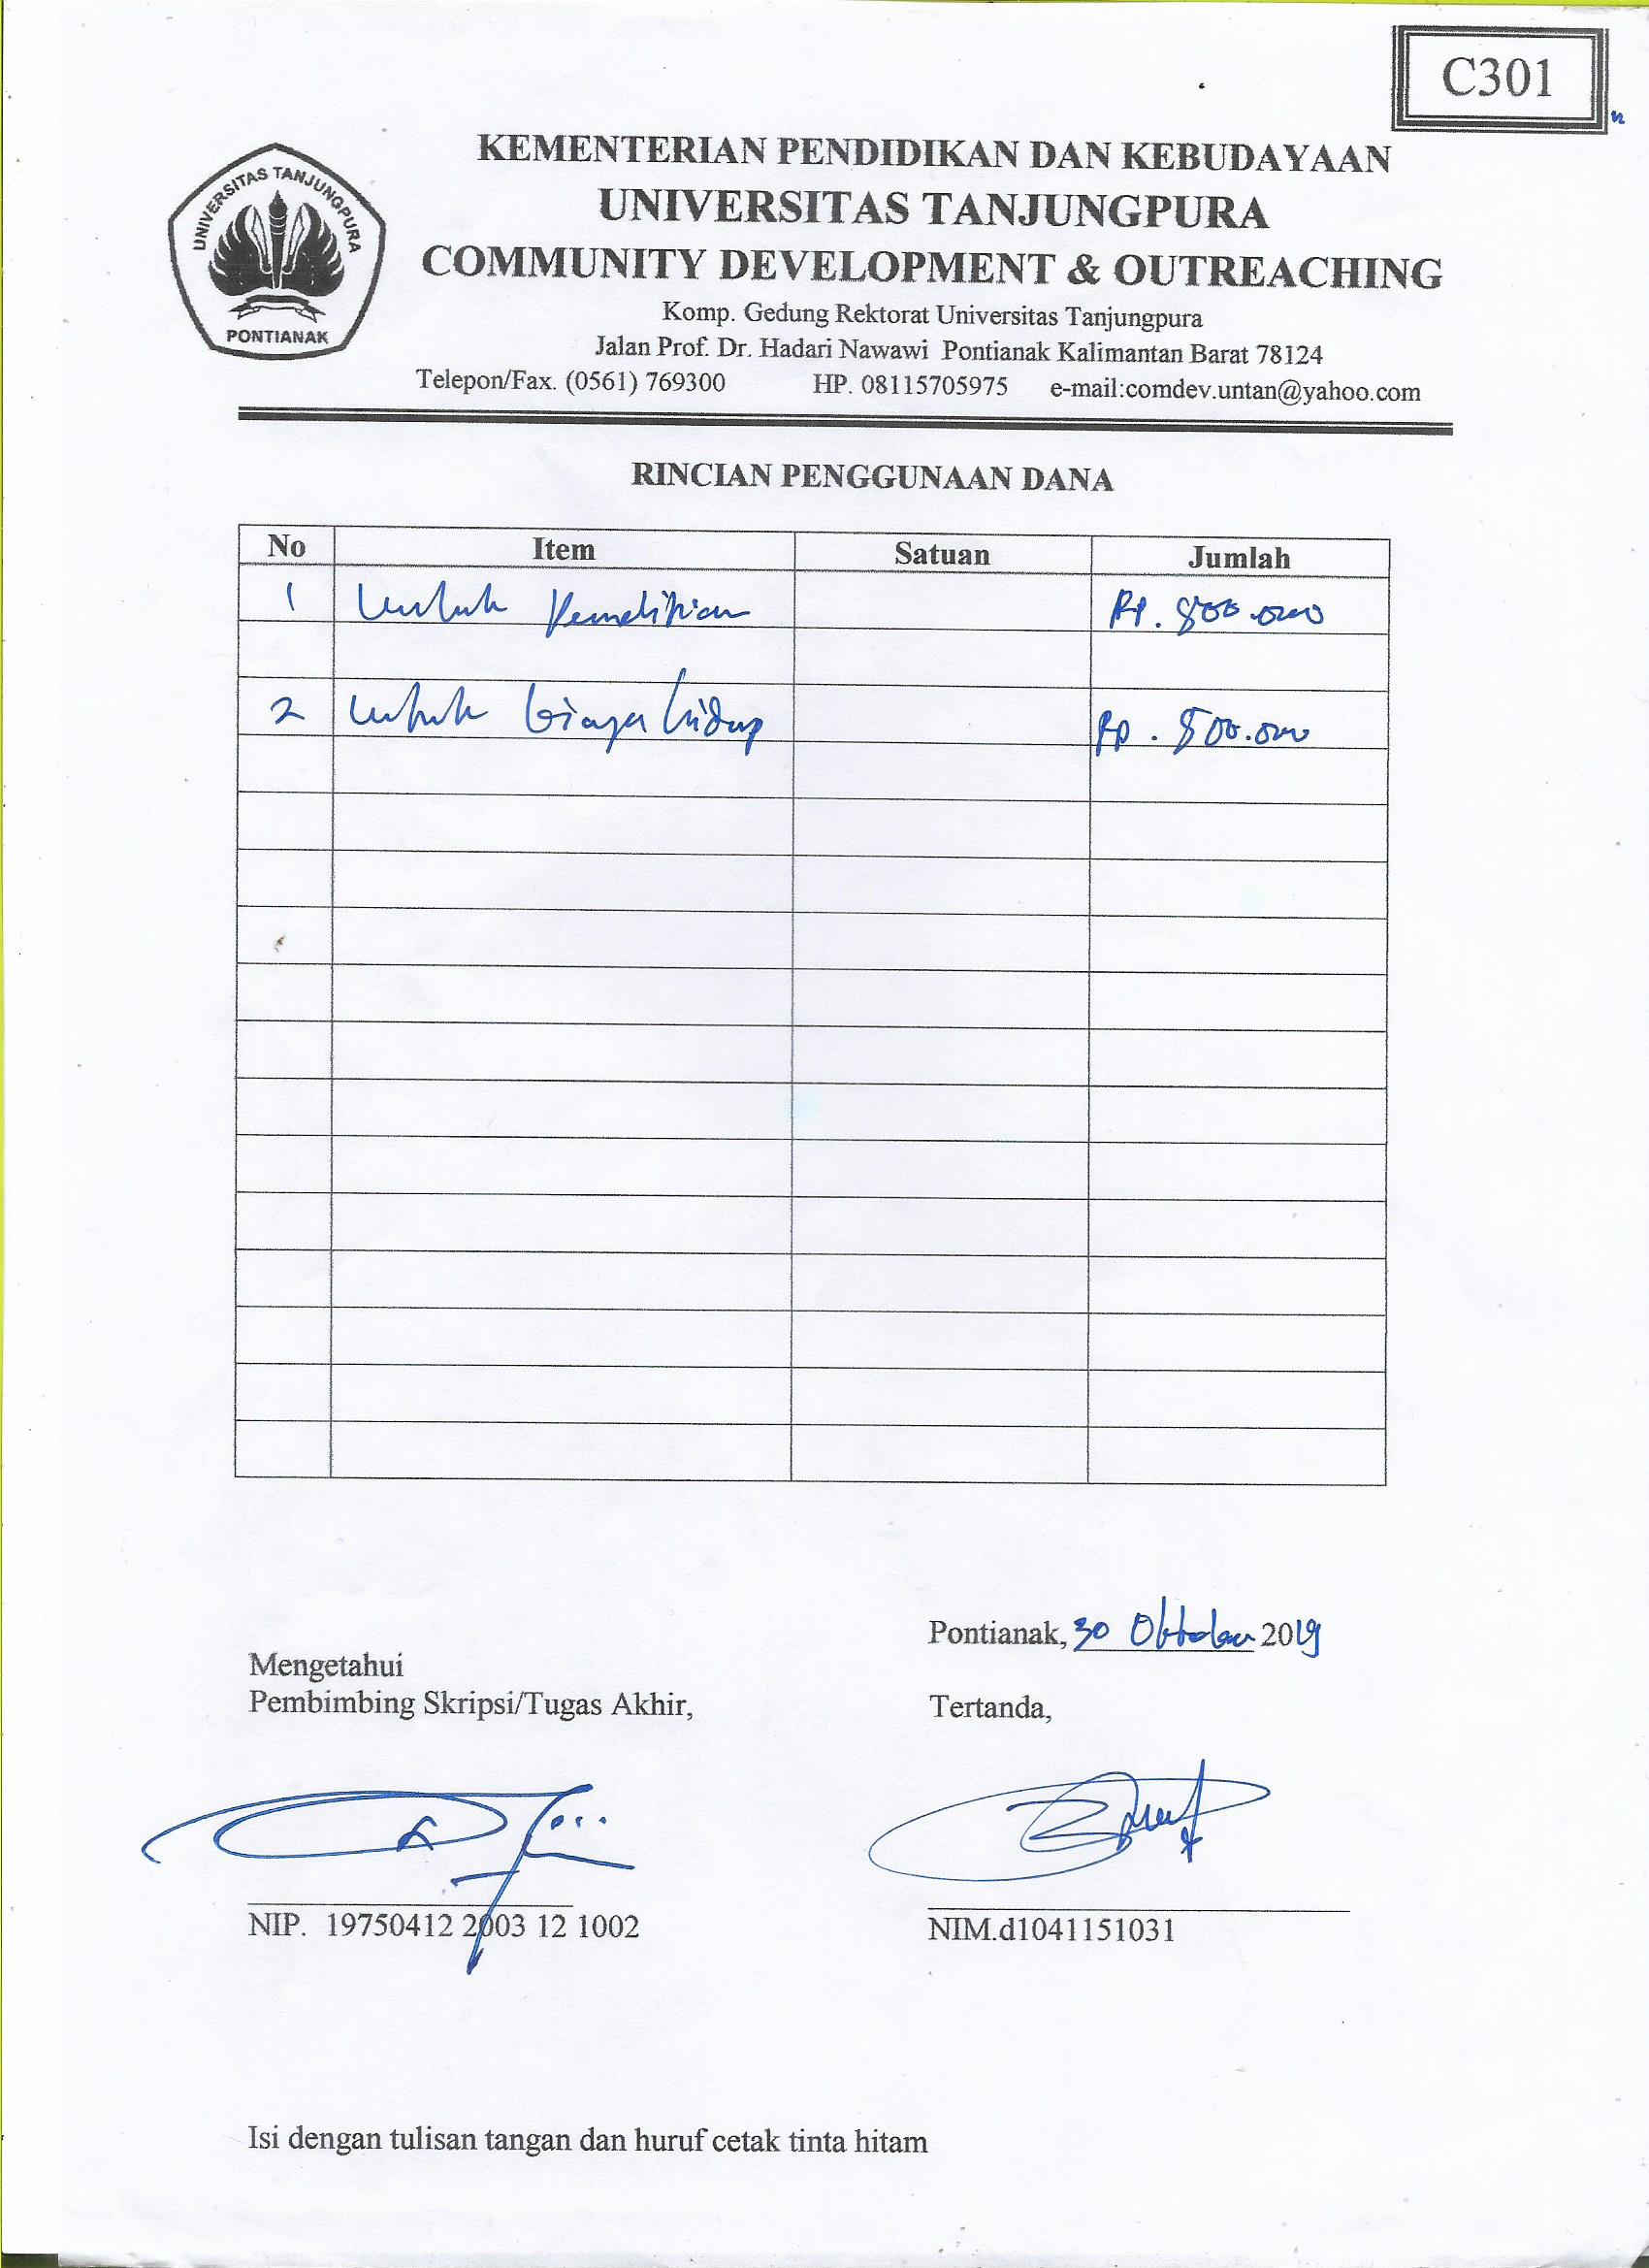 C301
KEMENTERIAN PENDIDIKAN DAN KEBUDAYAAN
UNIVERSITAS TANJUNGPURA
COMMUNITY DEVELOPMENT & OUTREACHING
Komp. Gedung Rektorat Universitas Tanjungpura
Jalan Prof. Dr. Hadari Nawawi Pontianak Kalimantan Barat 78124
Telepon/Fax. (0561) 769300 HP. 08115705975 e-mail:comdev.untan@yahoo.com
UNIVERSITAS TANJUNGPURA
PONTIANAK
RINCIAN PENGGUNAAN DANA
No Item Satuan Jumlah
1 Untuk Penelitian Rp. 800.000
2 untuk biaya hidup Rp. 500.000
Pontianak, 30 Oktober 2019
Mengetahui
Pembimbing Skripsi/Tugas Akhir, Tertanda,
NIP. 19750412 2003 12 1002 NIM.d1041151031
Isi dengan tulisan tangan dan huruf cetak tinta hitam